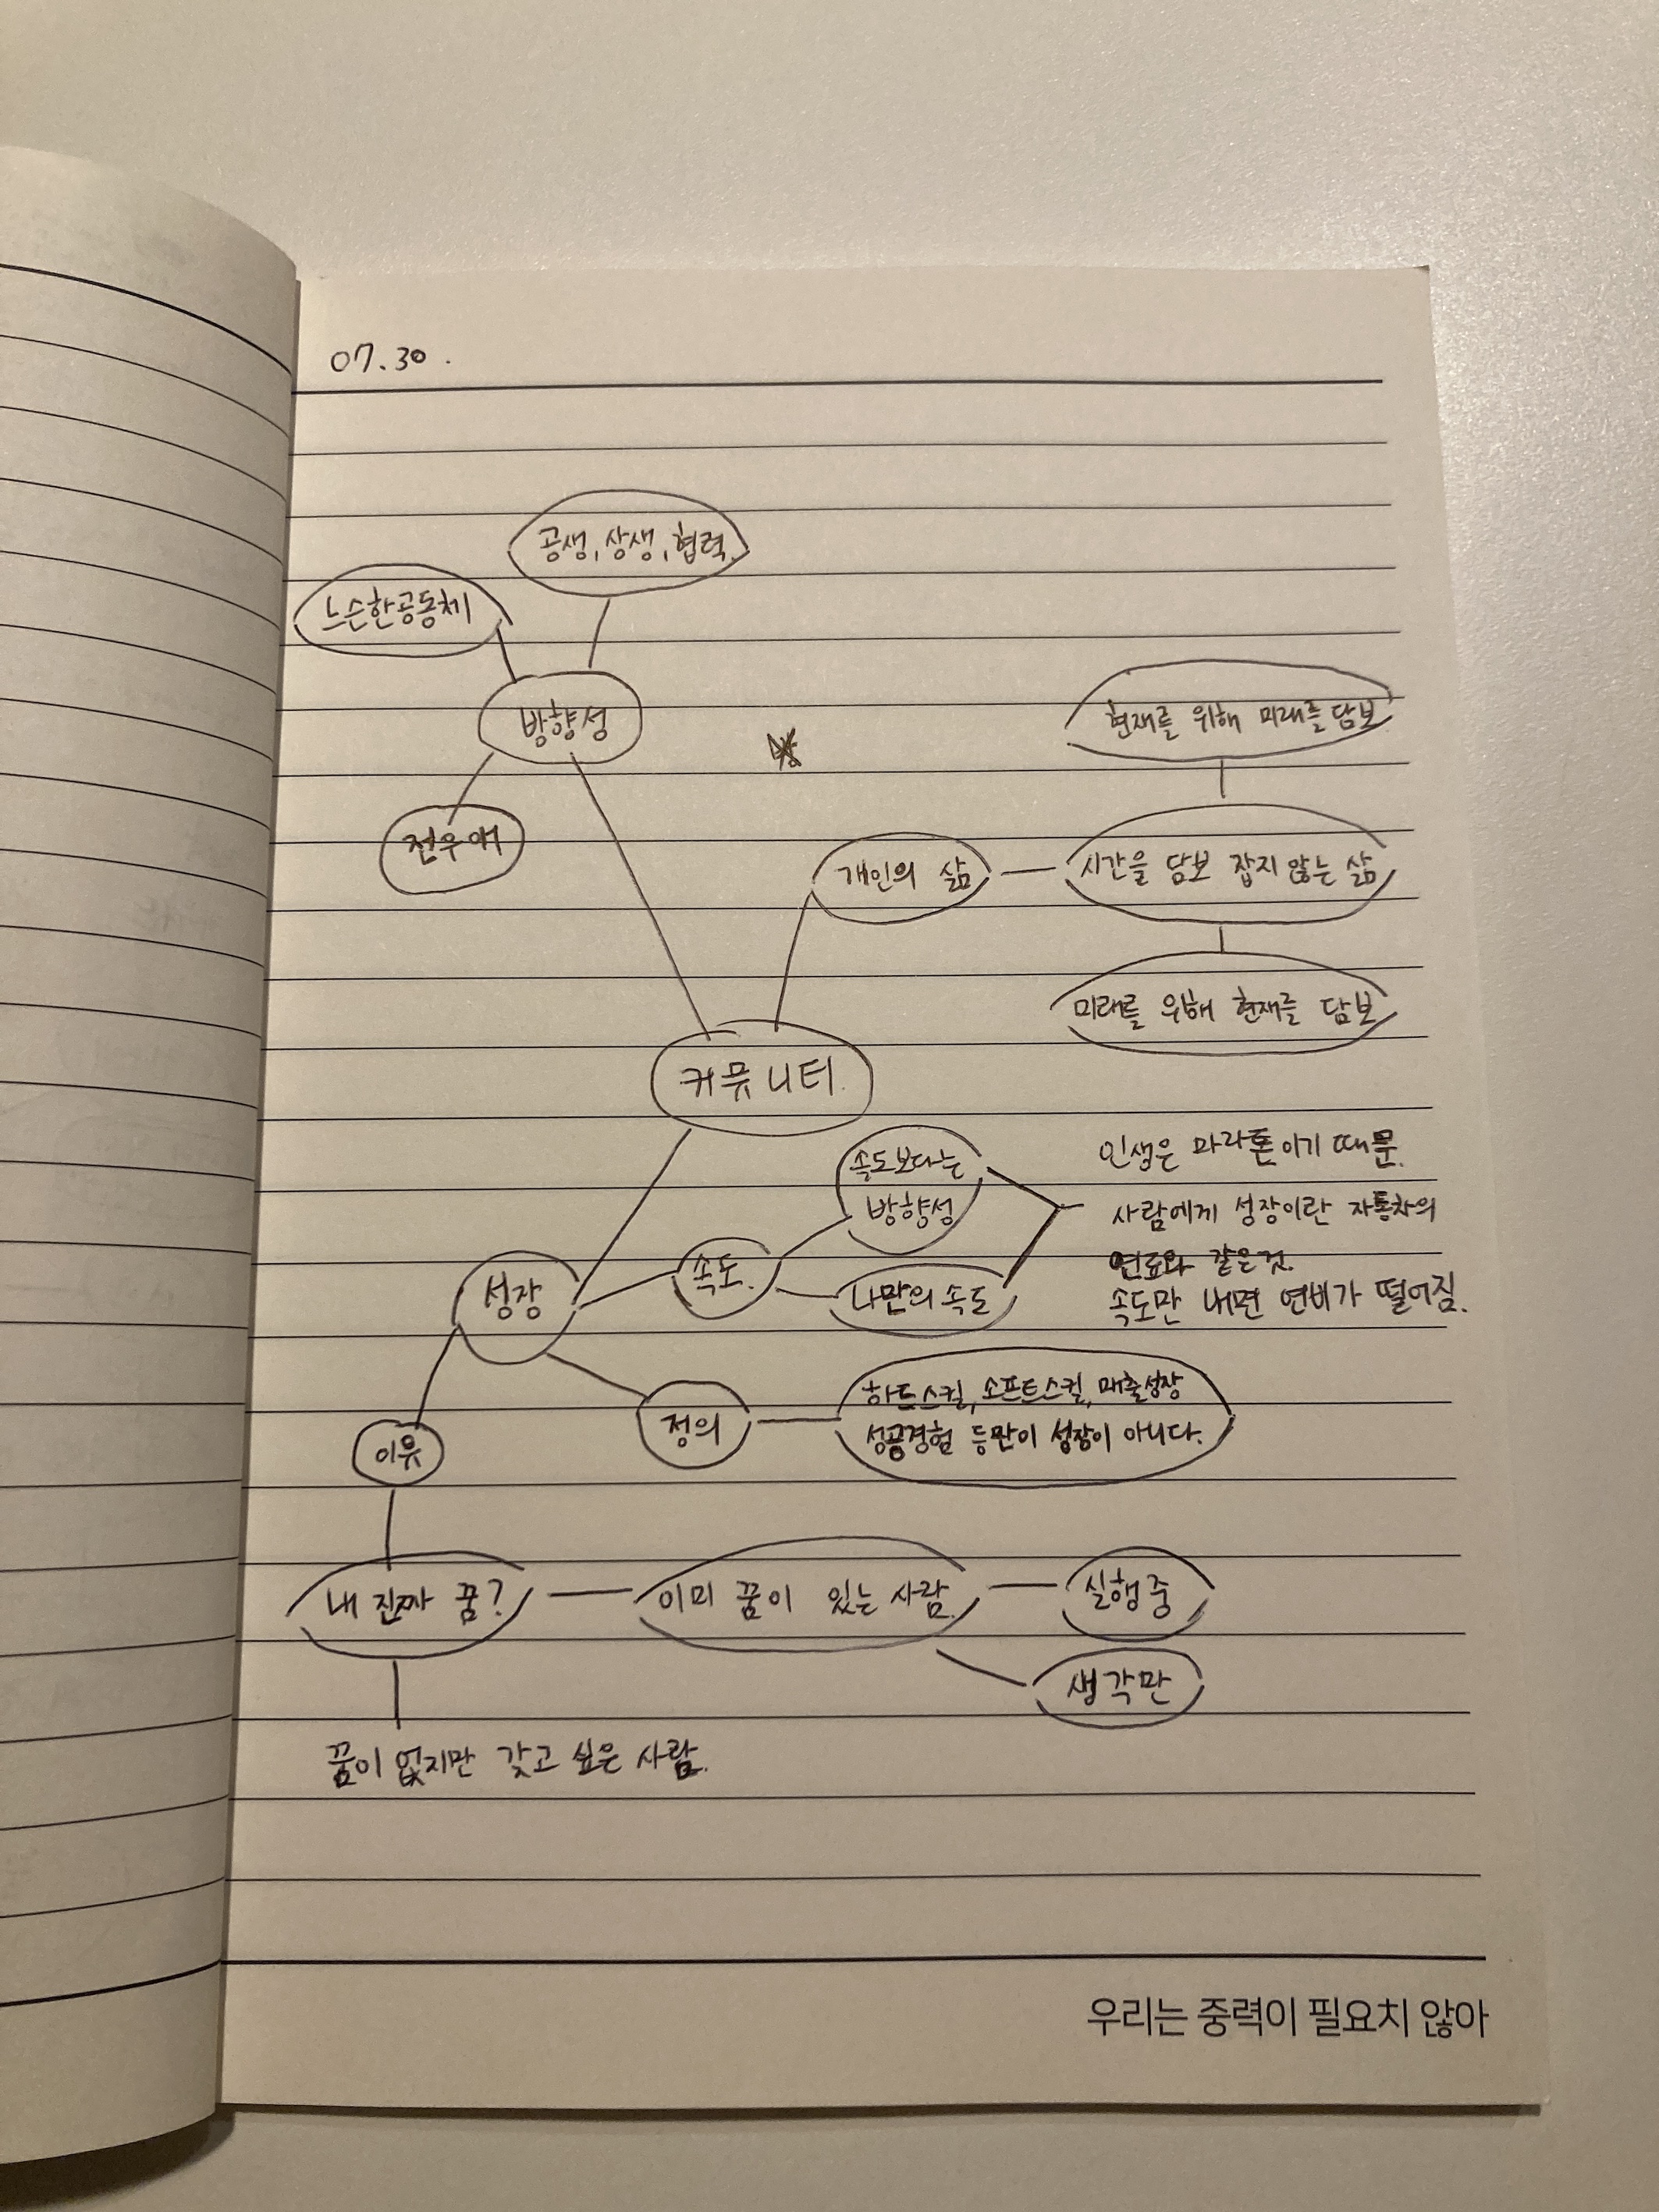 07.30.
공생, 상생, 협력
느슨한공동체
방향성
현재를 위해 미래를 담보
전우애
개인의 삶
시간을 담보 잡지 않는 삶
미래를 위해 현재를 담보
커뮤니티
속도보다는
방향성
인생은 마라톤이기 때문.
사람에게 성장이란 자동차의
연료와 같은것.
속도만 내면 연비가 떨어짐.
성장
속도.
나만의 속도
정의
하드스킬, 소프트스킬, 매출성장
성공경험 등만이 성장이 아니다.
이유
내 진짜 꿈?
이미 꿈이 있는 사람.
실행중
생각만
꿈이 없지만 갖고 싶은 사람.
우리는 중력이 필요치 않아